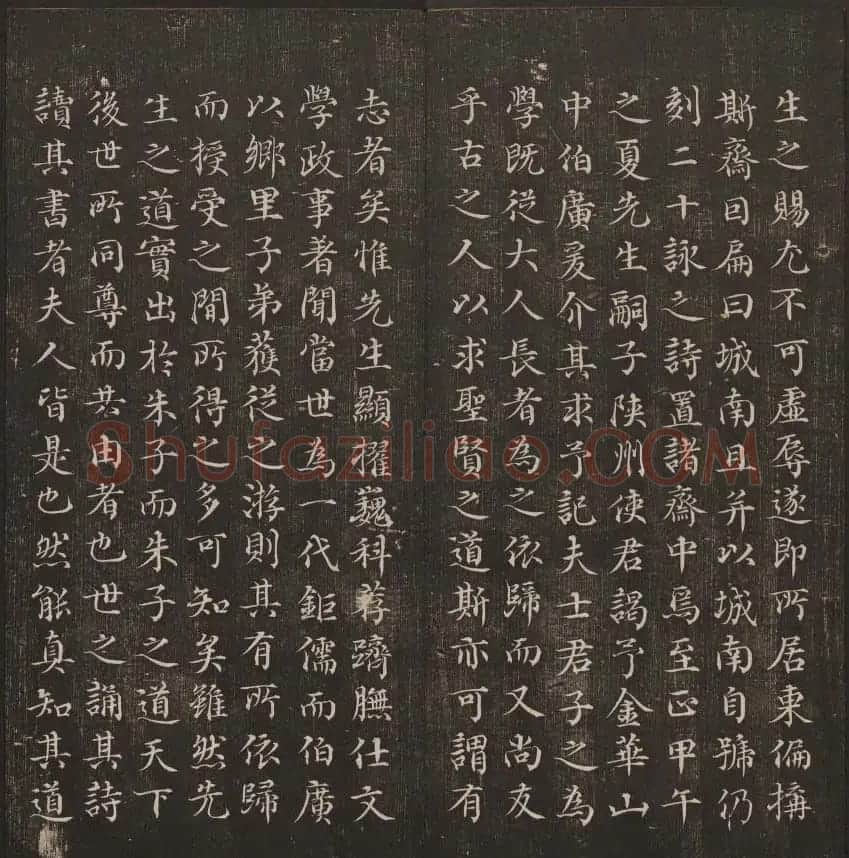 生之賜尤不可虛辱遂即所居東偏搆
斯齋因扁曰城南且并以城南自號仍
刻二十詠之詩置諸齋中焉至正甲午
之夏先生嗣子陝州使君謁予金華山
中伯廣爰介其求予記夫士君子之為
學既從大人長者為之依歸而又尚友
乎古之人以求聖賢之道斯亦可謂有
志者矣惟先生顯擢巍科荐躋膴仕文
學政事著聞當世為一代鉅儒而伯廣
以鄉里子弟獲從之游則其有所依歸
而授受之間所得之多可知矣雖然先
生之道實出於朱子而朱子之道天下
後世所同尊而共由者也世之誦其詩
讀其書者夫人皆是也然能真知其道
Shufaziliao.COM